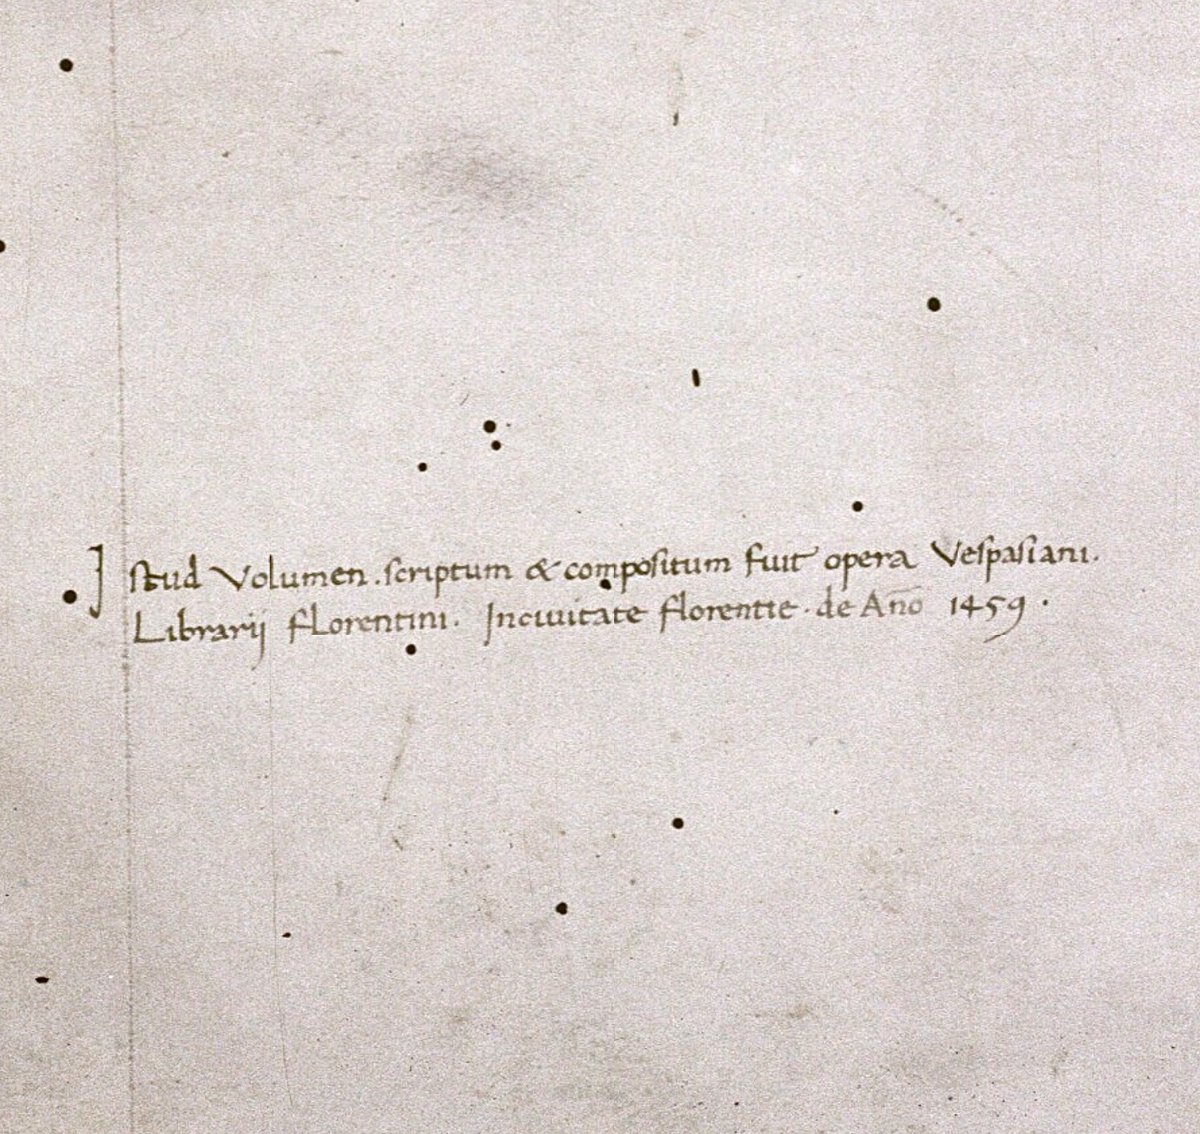 Istud Volumen . scriptum & compositum fuit opera Vespasiani .
Librarij florentini . Inciuitate florentie . de Año 1459 .